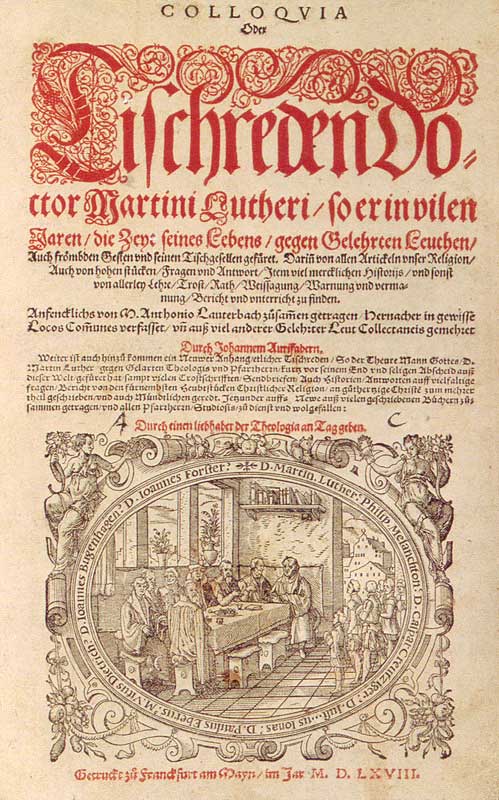 COLLOQVIA
Oder
Tischreden Do-
ctor Martini Lutheri / so er in vilen
Jaren / die Zeyt seines Lebens / gegen Gelehrten Leuthen /
Auch frömbden Gesten vnd seinen Tischgesellen gefüret. Dariñ von allen Artickeln vnser Religion /
Auch von hohen stücken / Fragen vnd Antwort / Item viel mercklichen Historijs / vnd sonst
von allerley Lehr / Trost / Rath / Weissagung / Warnung vnd verma-
nung / Bericht vnd vnterricht zu finden.
Anfencklichs von M. Anthonio Lauterbach zůsamen getragen / Hernacher in gewisse
Locos Com̃unes verfasset / vñ auß viel anderer Gelehrter Leut Collectaneis gemehret
Durch Johannem Aurifabern.
Weiter ist auch hinzů kommen ein Newer Anhang etlicher Tischreden / So der Thewre Mann Gottes / D.
Martin Luther / gegen Gelarten Theologis vnd Pfarrherrn / kurtz vor seinem End vnd seligen Abscheid auß
dieser Welt / gefürt hat / sampt vielen Trostschrifften / Sendbriefen / Auch Historien / Antworten auff vielfaltige
fragen / Bericht von den fürnembsten Heubtstücken Christlicher Religion / an gůthertzige Christē zum mehrer
theil geschrieben / vnd auch Mündlichen geredt. Jetzunder auffs Newe auß vielen geschriebenen Büchern zů-
sammen getragen / vnd allen Pfarrherrn / Studiosis / zů dienst vnd wolgefallen :
Durch einen liebhaber der Theologia an Tag geben.
A C
D. Martin. Luther: Philip Melanthon: D. Caspar Creutziger: D. Just us Ionas: D. Paulus Eberus: M. Vitus Dietrich: D. Ioannes Bugenhagen: D. Ioannes Forster:
Getruckt zů Franckfurt am Mayn / im Jar M. D. LXVIII.